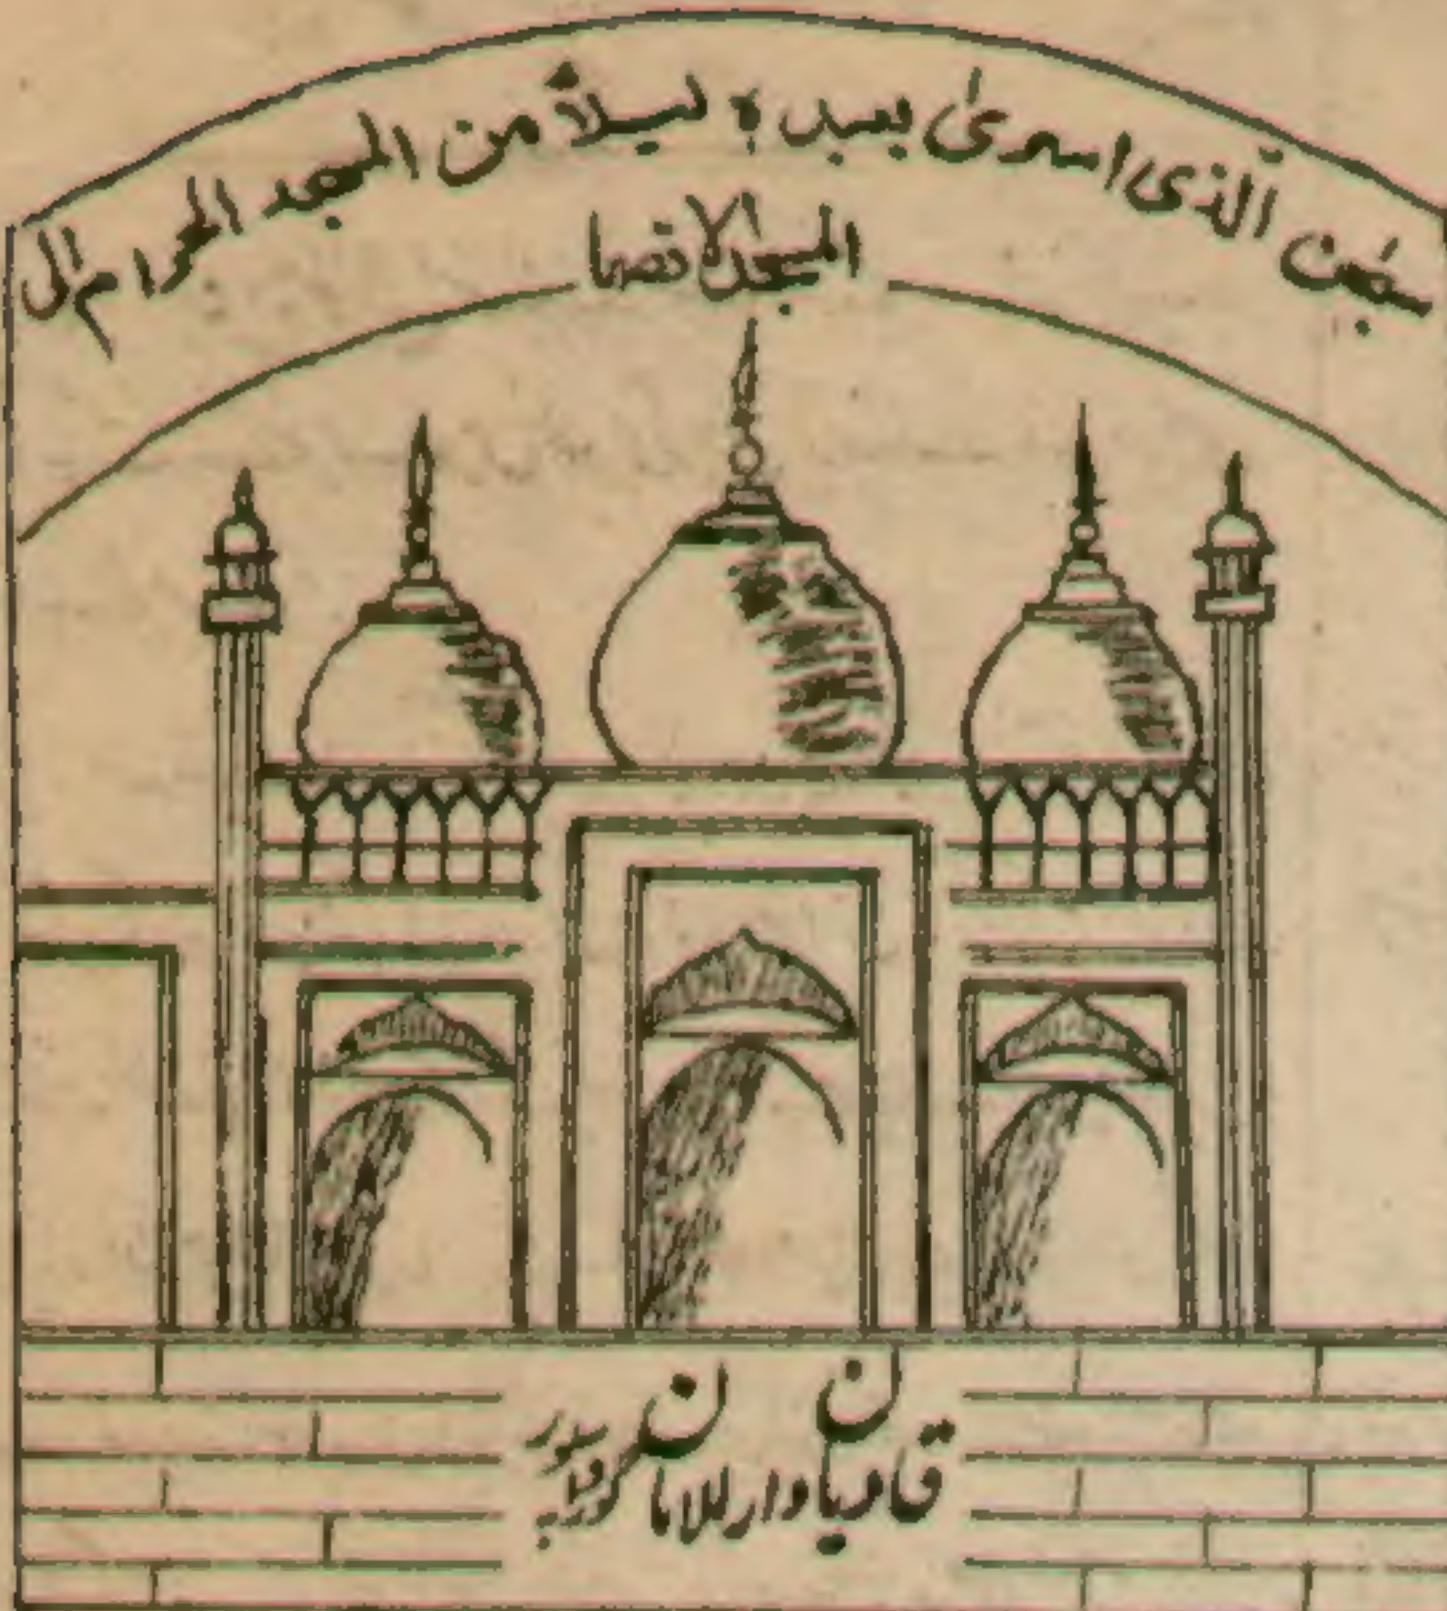 سبحٰن الّذی اسریٰ بعبدہٖ لیلاً من المسجد الحرام الی
المسجد الاقصا
قادیان دارالامان گورداسپور